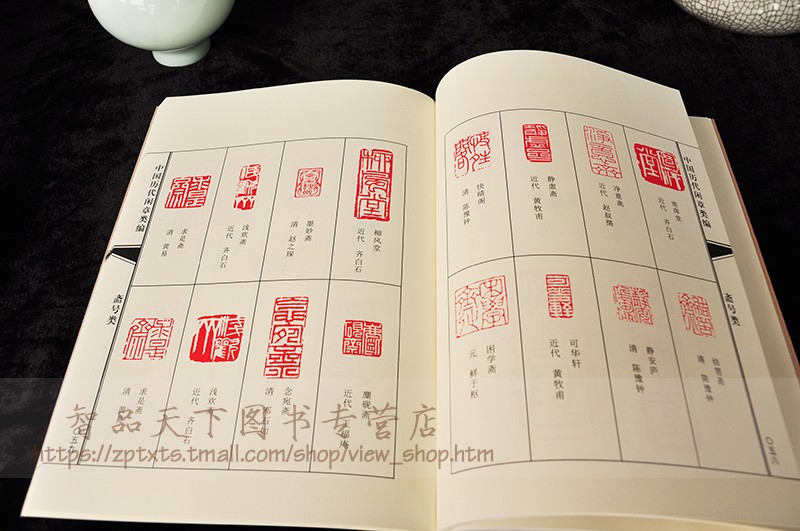 中国历代闲章类编
斋号类
〇五八
寄萍堂
近代 齐白石
净意斋
近代 赵叔孺
静虚斋
近代 黄牧甫
快晴阁
清 陈豫钟
清 陈豫钟
静安庐
清 陈豫钟
可华轩
近代 黄牧甫
困学斋
元 鲜于枢
柳风堂
近代 齐白石
墨妙斋
清 赵之琛
浅欢斋
近代 齐白石
求是斋
清 黄易
麋砚斋
近代 王福庵
念宛斋
清
浅欢
近代 齐白石
求是斋
清
中国历代闲章类编
斋号类
〇五九
智品天下图书专营店
https://zptxts.tmall.com/shop/view_shop.htm